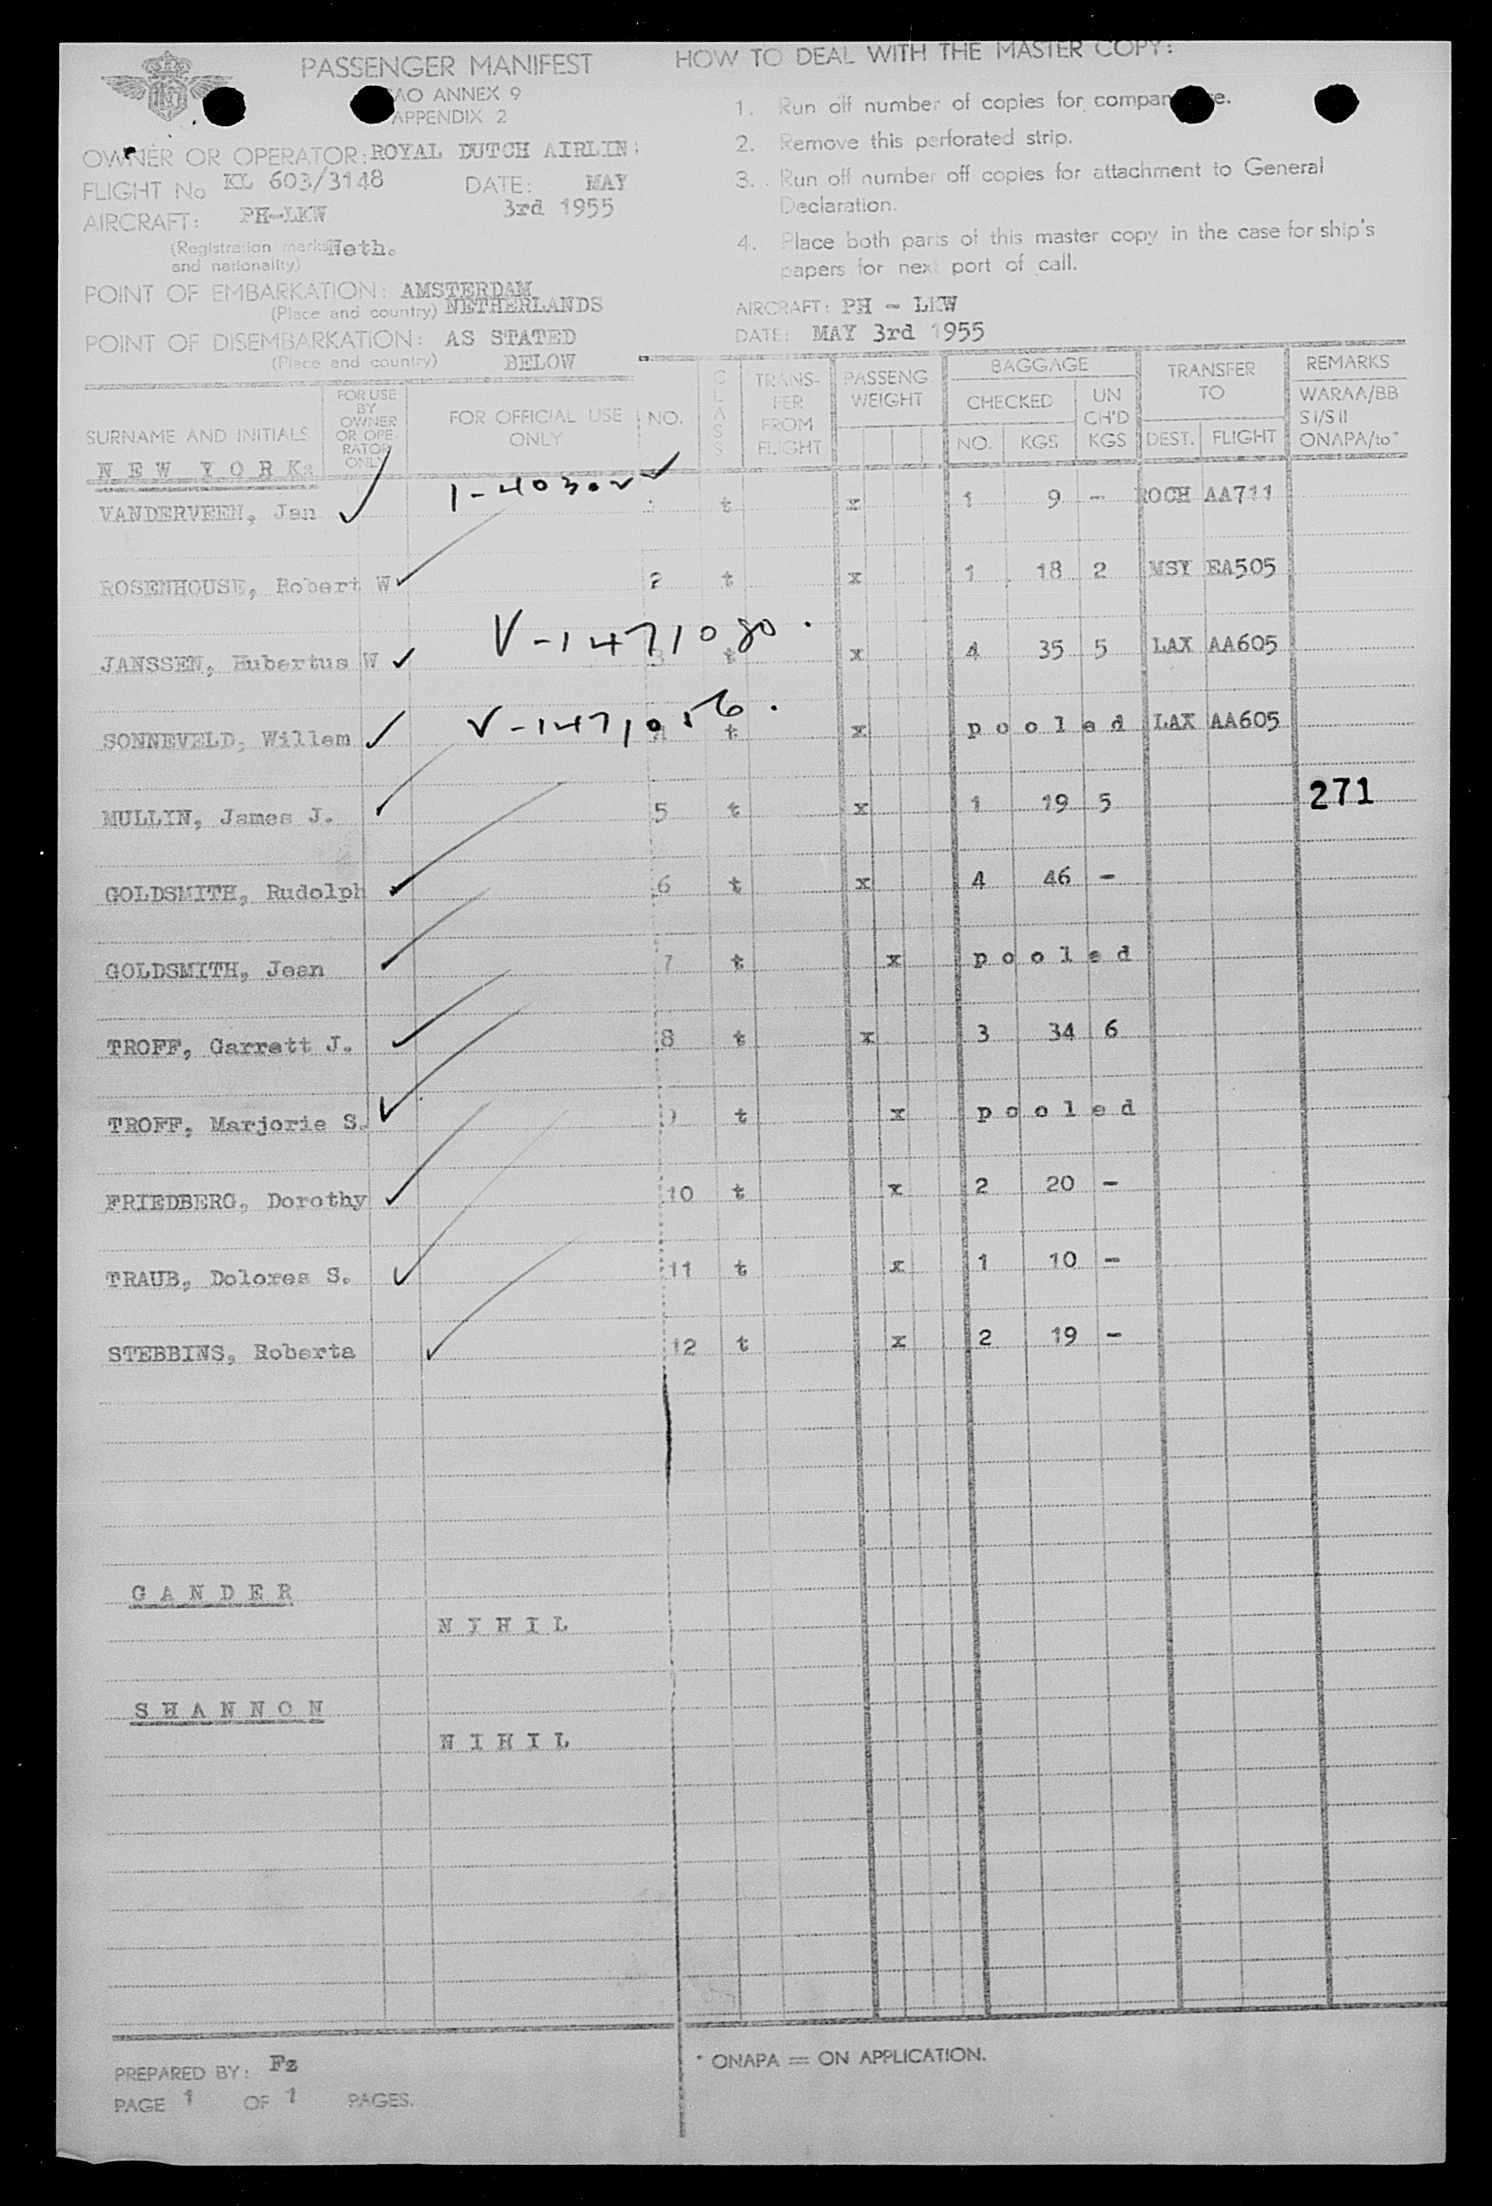 PASSENGER MANIFEST
ANNEX 9
APPENDIX 2
OWNER OR OPERATOR: ROYAL DUTCH AIRLIN
FLIGHT No KL 603/3148 DATE: MAY
3rd 1955
AIRCRAFT: PH-LKW
(Registration marks Neth.
and nationality)
POINT OF EMBARKATION: AMSTERDAM
(Place and country) NETHERLANDS
POINT OF DISEMBARKATION: AS STATED
(Place and country) BELOW
HOW TO DEAL WITH THE MASTER COPY:
1. Run off number of copies for
2. Remove this perforated strip.
3. Run off number off copies for attachment to General
Declaration.
4. Place both parts of this master copy in the case for ship's
papers for next port of call.
AIRCRAFT: PH - LKW
DATE: MAY 3rd 1955
SURNAME AND INITIALS
FOR USE
BY
OWNER
OR OPE-
RATOR
ONLY
FOR OFFICIAL USE
ONLY
NO.
CLASS
TRANS-
FER
FROM
FLIGHT
PASSENG
WEIGHT
BAGGAGE
CHECKED
NO. KGS
UN
CH'D
KGS
TRANSFER
TO
DEST. FLIGHT
REMARKS
WARAA/BB
SI/SII
ONAPA/to*
NEW YORK:
VANDERVEEN, Jan t x 1 9 - ROCH AA711
ROSENHOUSE, Robert W 2 t x 1 18 2 MSY EA505
V-1471080.
JANSSEN, Hubertus W 3 t x 4 35 5 LAX AA605
V-1471056.
SONNEVELD, Willem 4 t x pooled LAX AA605
MULLIN, James J. 5 t x 1 19 5 271
GOLDSMITH, Rudolph 6 t x 4 46 -
GOLDSMITH, Jean 7 t x pooled
TROFF, Garrett J. 8 t x 3 34 6
TROFF, Marjorie S. 9 t x pooled
FRIEDBERG, Dorothy 10 t x 2 20 -
TRAUB, Dolores S. 11 t x 1 10 -
STEBBINS, Roberta 12 t x 2 19 -
GANDER
NIHIL
SHANNON
NIHIL
PREPARED BY: Fz
PAGE 1 OF 1 PAGES.
* ONAPA = ON APPLICATION.